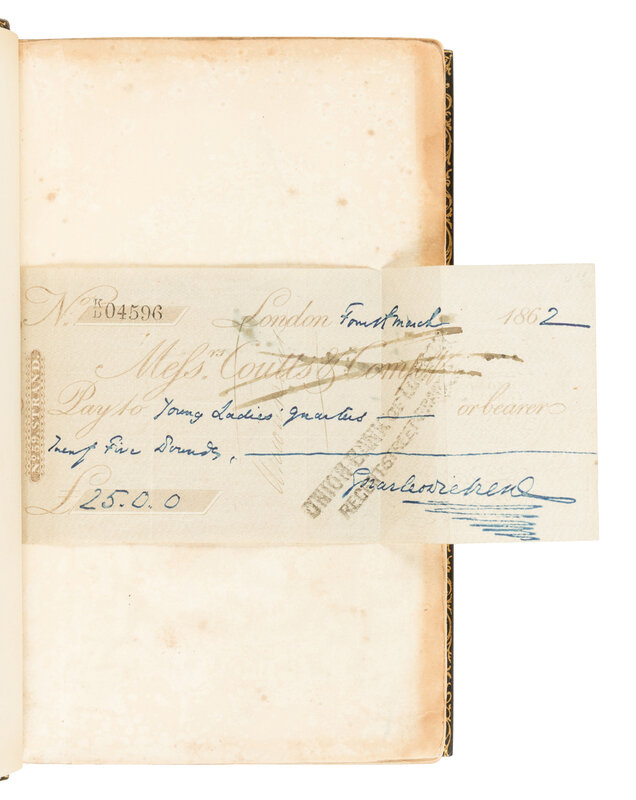 No. K/D 04596 London Fourth March 1862
Messrs. Coutts & Comp
Pay to Young Ladies' Quarters or bearer
Twenty Five Pounds,
£25.0.0 Charles Dickens
No. 59, STRAND.
UNION BANK OF LONDON
REGENT STREET